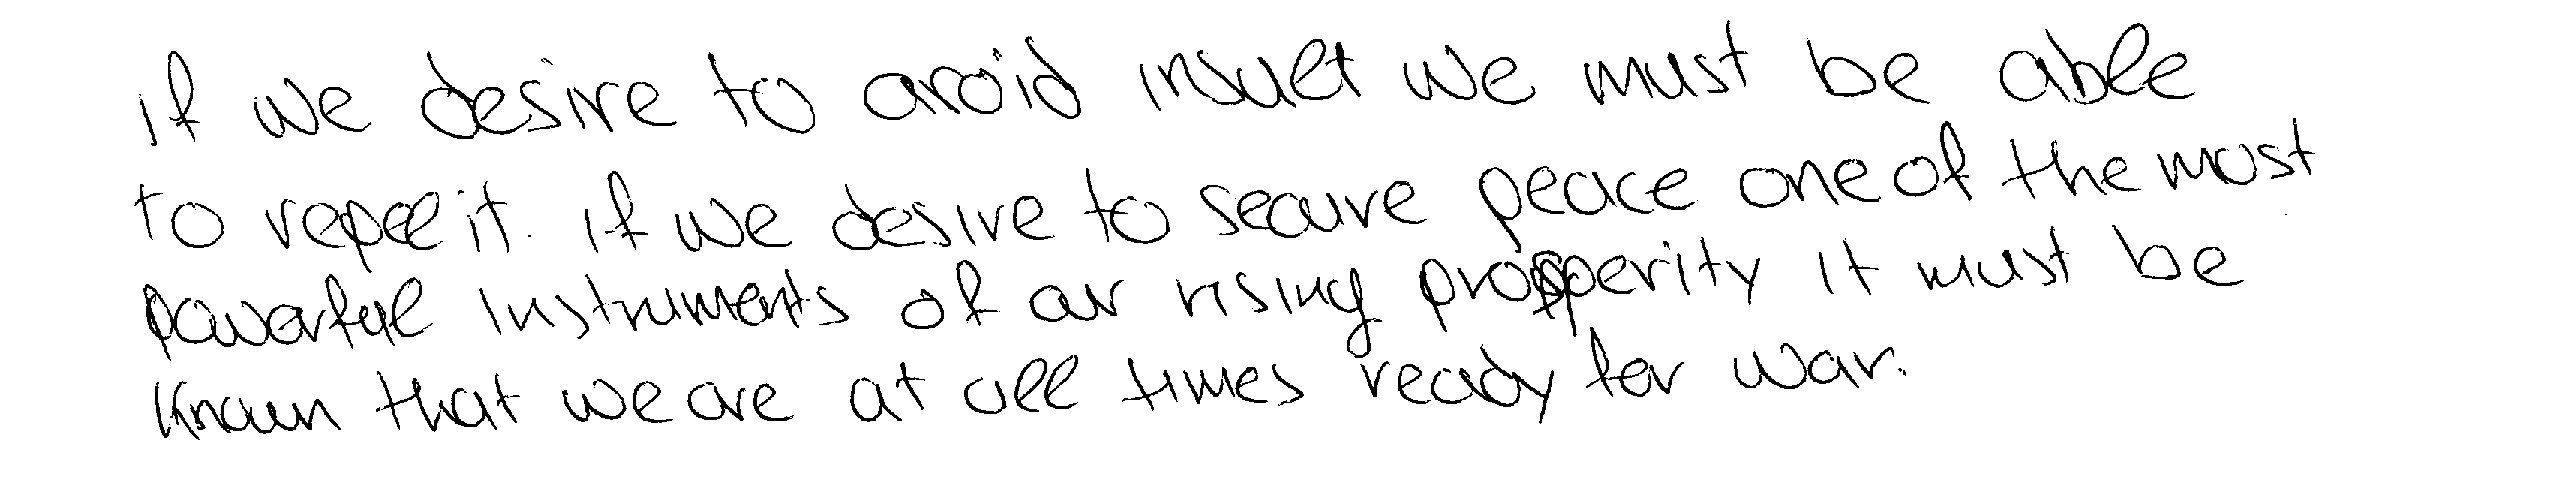 if we desire to avoid insult we must be able
to repel it. if we desire to secure peace one of the most
powerful instruments of our rising prosperity it must be
known that we are at all times ready for war.